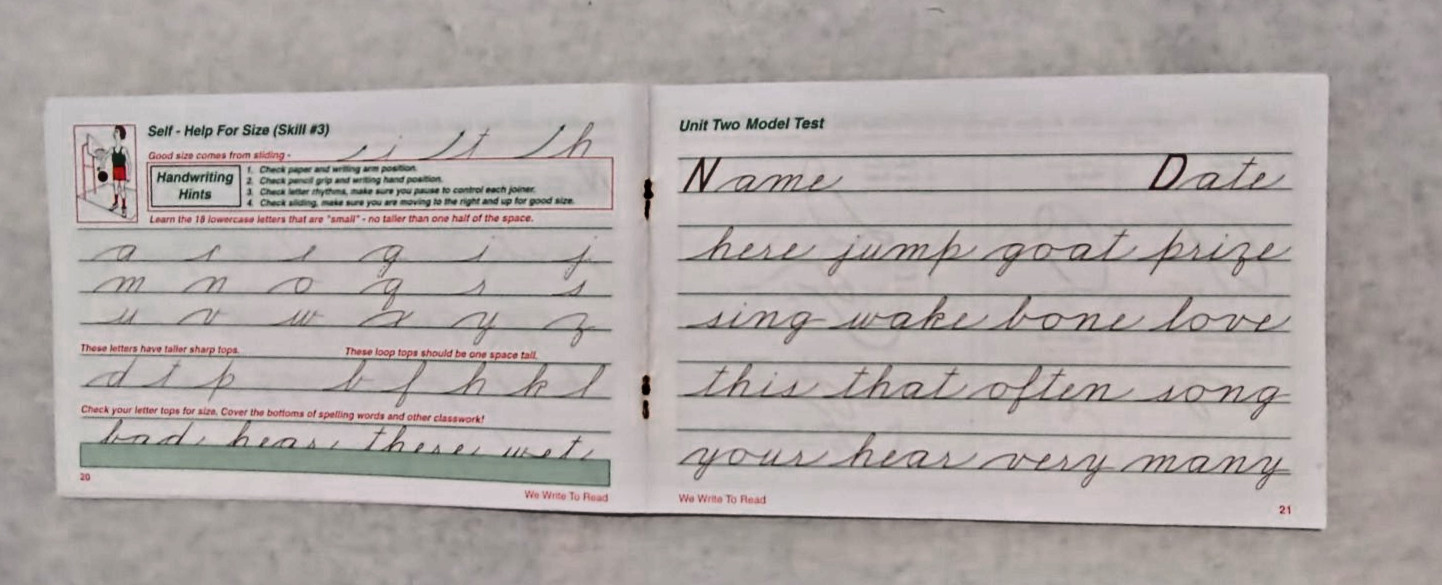 Self - Help For Size (Skill #3)
Good size comes from sliding - i t h
Handwriting Hints
1. Check paper and writing arm position.
2. Check pencil grip and writing hand position.
3. Check letter rhythms, make sure you pause to control each joiner.
4. Check sliding, make sure you are moving to the right and up for good size.
Learn the 18 lowercase letters that are "small" - no taller than one half of the space.
a c e g i j
m n o q r s
u v w x y z
These letters have taller sharp tops. These loop tops should be one space tall.
d t p b f h k l
Check your letter tops for size. Cover the bottoms of spelling words and other classwork!
bad hear there wet
20
We Write To Read
Unit Two Model Test
Name Date
here jump goat prize
sing wake bone love
this that often song
your hear very many
We Write To Read
21